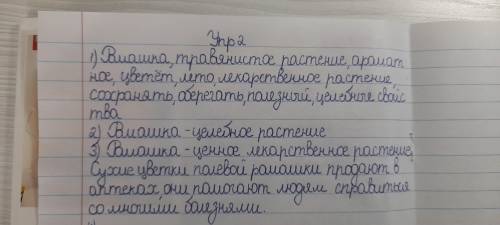 Упр 2
1) Ромашка, травянистое растение, аромат
ное, цветёт, лето, лекарственное растение,
сохранять, оберегать, полезный, целебные свойс
тва
2) Ромашка - целебное растение
3) Ромашка - ценное лекарственное растение,
Сухие цветки полевой ромашки продают в
аптеках, они помогают людям справиться
со многими болезнями.